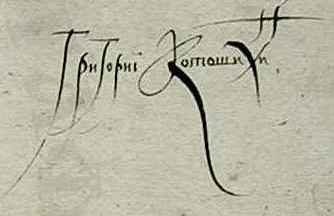 Григорий Котошихин